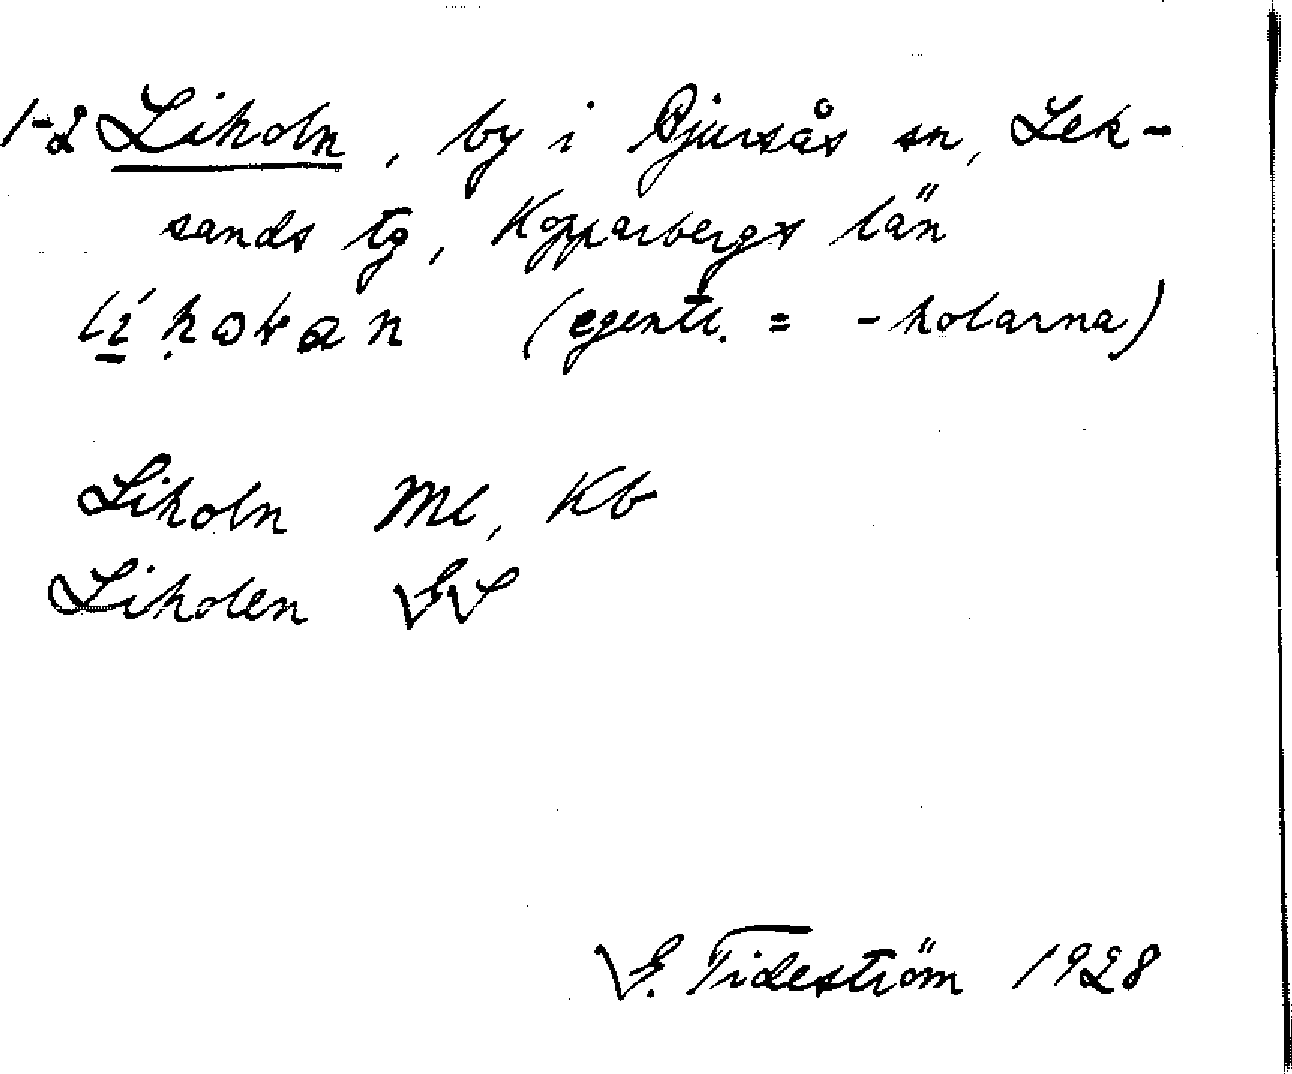 1-2 Liholn, by i Bjursås sn, Lek-
sands tg, Kopparbergs län
(egentl. = -holarna)
Liholn Ml, Kb
Liholen
G. Tideström 1928